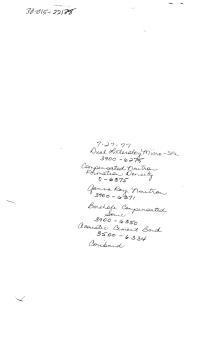 30-015-22175
7-27-77
Dual Laterolog Micro-SFL
3900-6275
Compensated Neutron
Formation Density
0-6375
Gamma Ray Neutron
3900-6371
Borehole Compensated
Sonic
3900-6350
Acoustic Cement Bond
3500-6334
Coriband